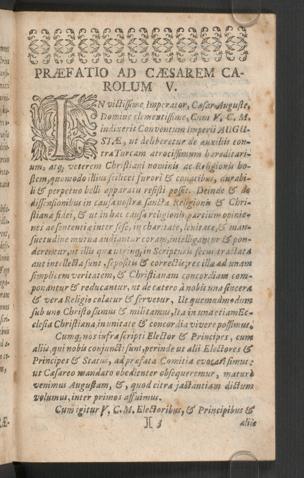 PRÆFATIO AD CÆSAREM CA-
ROLUM V.
INvictissime Imperator, Cæsar Auguste,
Domine clementissime, Cum V. C. M.
indixerit Conventum imperii AUGU-
STÆ, ut deliberetur de auxiliis con-
tra Turcam atrocissimum hæreditari-
um, atq; veterem Christiani nominis ac Religionis ho-
stem, quomodo illius scilicet furori & conatibus, durabi-
li & perpetuo belli apparatu resisti possit. Deinde & de
dissensionibus in causa nostræ sanctæ Religionis & Chri-
stianæ fidei, & ut in hac causa religionis partium opinio-
nes ac sententiæ inter sese, in charitate, lenitate, & man-
suetudine mutua audiantur coram, intelligantur & pon-
derentur, ut illis quæ utrinq; in Scripturis secus tractata
aut intellecta sunt, sepositis & correctis, res illæ ad unam
simplicem veritatem, & Christianam concordiam com-
ponantur & reducantur, ut de cætero à nobis una sincera
& vera Religio colatur & servetur, Ut quemadmodum
sub uno Christo sumus & militamus, ita in una etiam Ec-
clesia Christiana in unitate & concordia vivere possimus.
Cumq; nos infra scripti Elector & Principes, cum
aliis, qui nobis conjuncti sunt, perinde ut alii Electores &
Principes & Status, ad præfata Comitia evocati simus:
ut Cæsareo mandato obedienter obsequeremur, mature
venimus Augustam, &, quod citra jactantiam dictum
volumus, inter primos affuimus.
Cum igitur V. C. M. Electoribus, & Principibus &
3
aliis